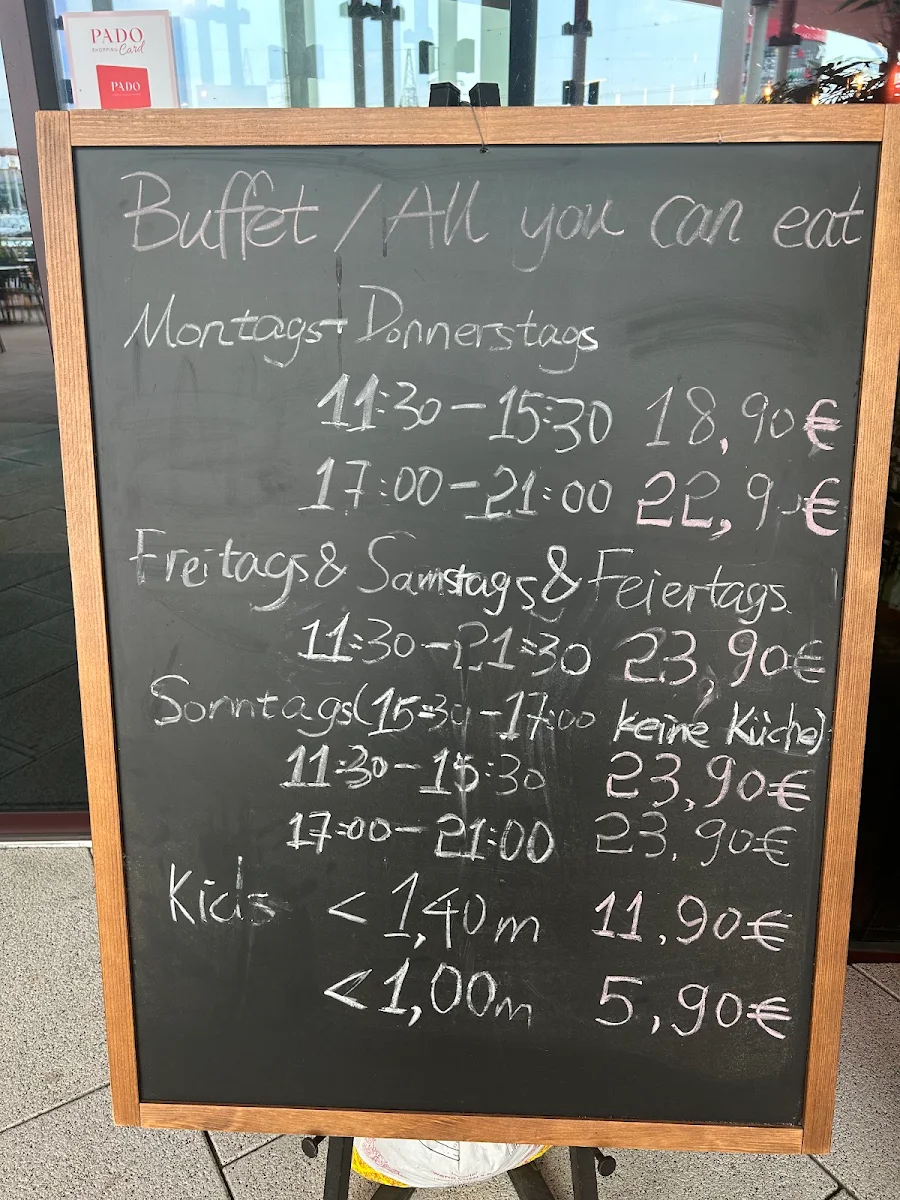 PADO
SHOPPING Card
PADO
Buffet / All you can eat
Montags - Donnerstags
11:30 - 15:30 18,90€
17:00 - 21:00 22,90€
Freitags & Samstags & Feiertags
11:30 - 21:30 23,90€
Sonntags (15:30 - 17:00 keine Küche)
11:30 - 15:30 23,90€
17:00 - 21:00 23,90€
Kids < 1,40m 11,90€
< 1,00m 5,90€